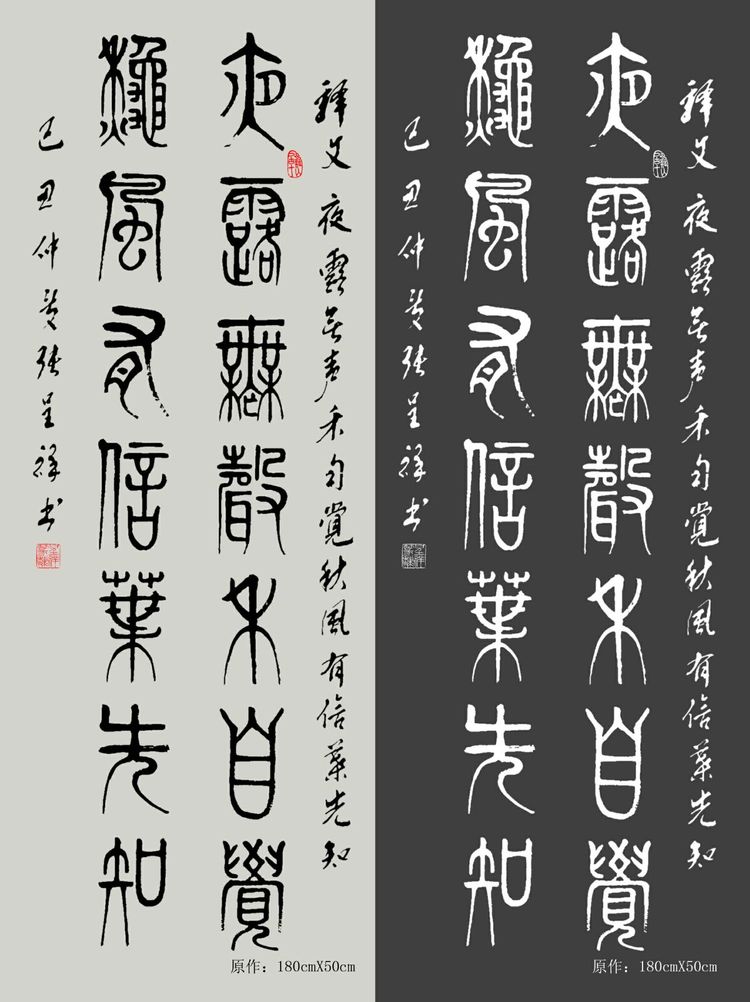 释文 夜露无声禾自覺秋風有信葉先知
夜露無聲禾自覺
龝風有信葉先知
己丑仲夏张呈祥书
原作：180cmX50cm
释文 夜露无声禾自覺秋風有信葉先知
夜露無聲禾自覺
龝風有信葉先知
己丑仲夏张呈祥书
原作：180cmX50cm